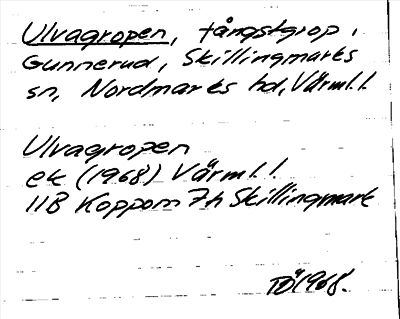 Ulvagropen, fångstgrop i
Gunnerud, Skillingmarks
sn, Nordmarks hd, Värml. l.
Ulvagropen
ek (1968) Värml. l.
11B Koppom 7h Skillingmark
TÖ 1968.